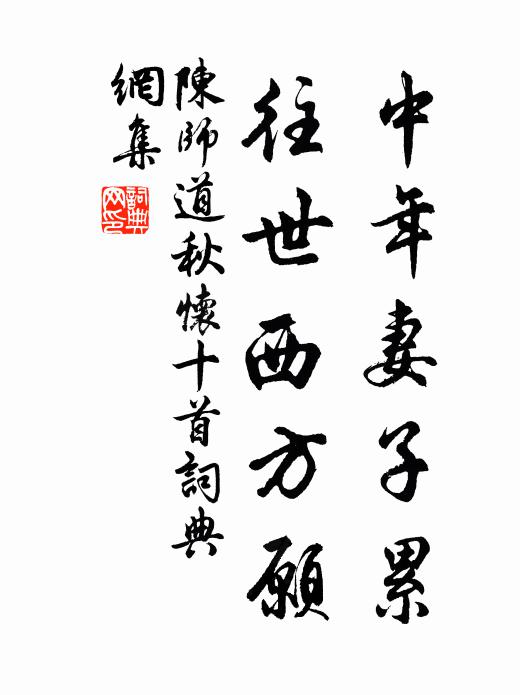 中年妻子累
往世西方願
陳師道秋懷十首詞典
網集
詞典
网印